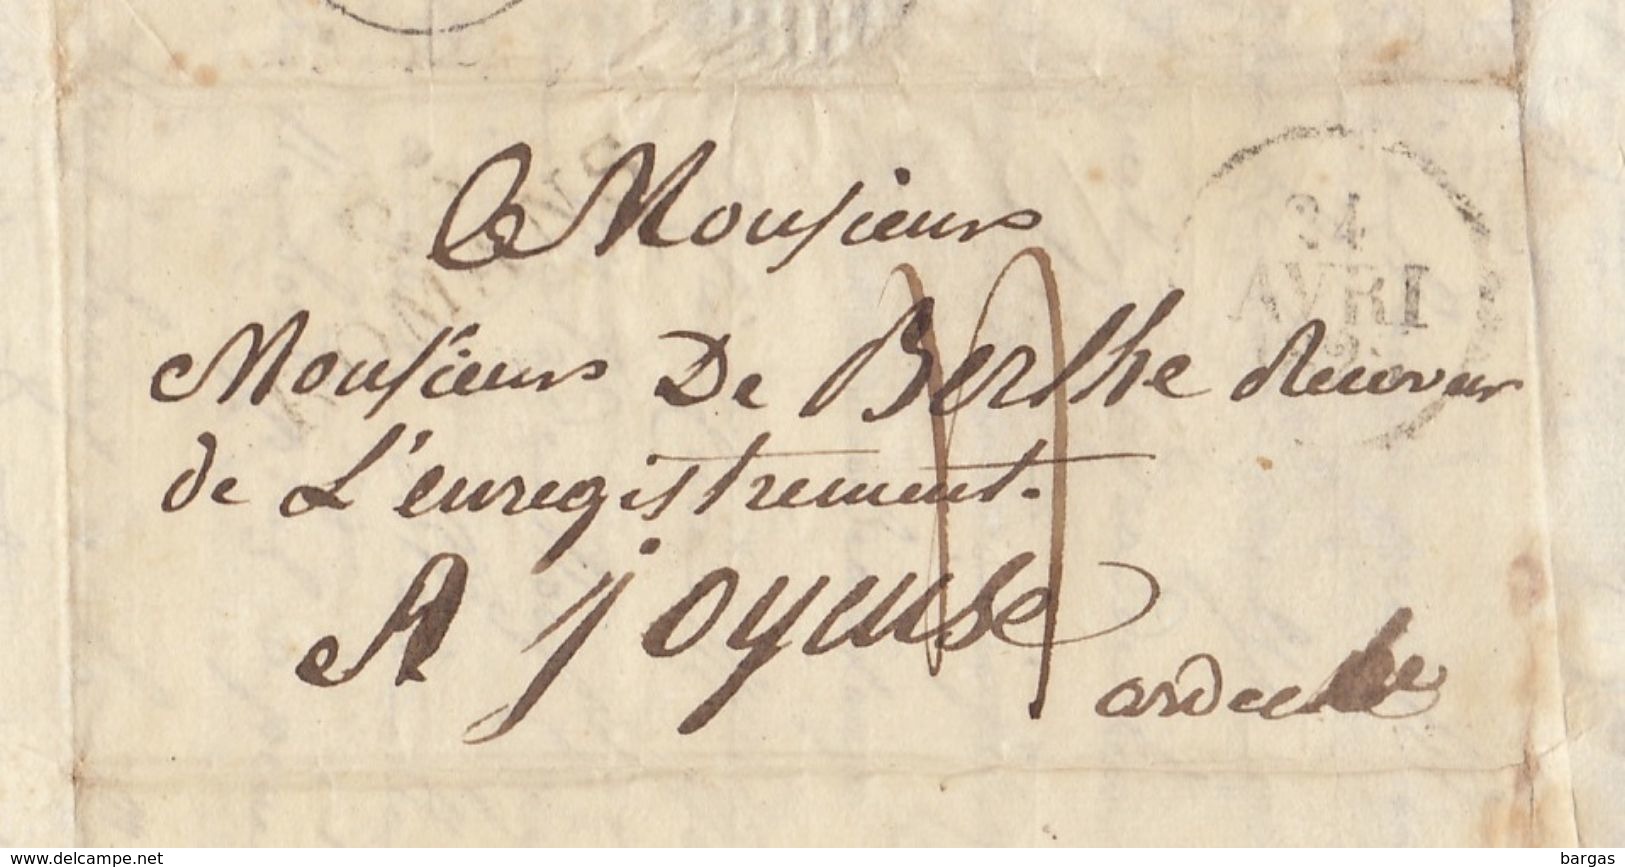 A Monsieur
Monsieur De Berthe Receveur
de L'enregistrement.
A joyeuse
ardeche
24
AVRI
www.delcampe.net
bargas